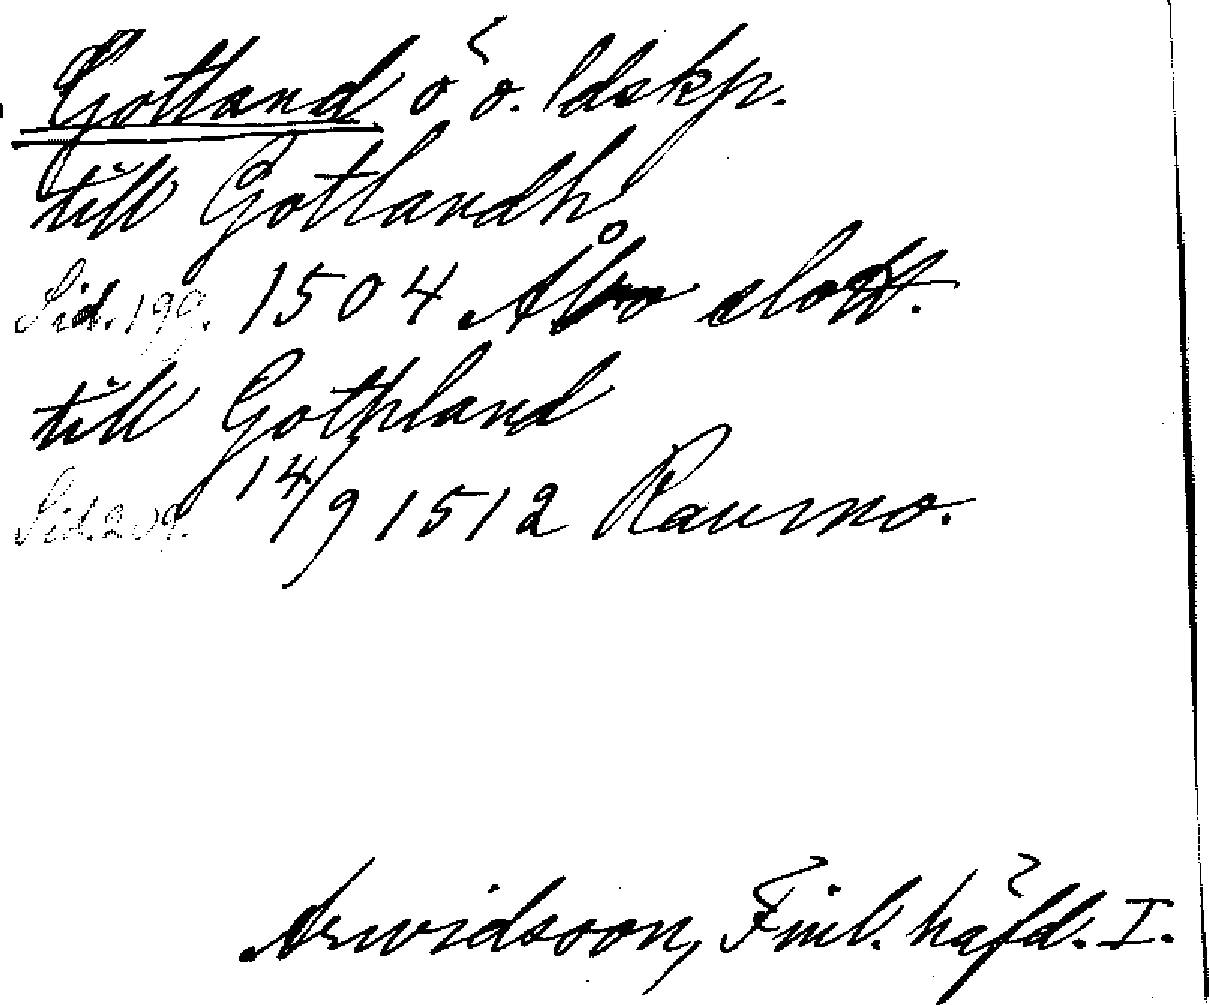 Gotland ö o. ldskp.
till Gotlandh
Sid. 199. 1504 Åbo slott.
till Gothland
Sid. 209. 14/9 1512 Raumo.
Arwidsson, Finl. häfd. I.